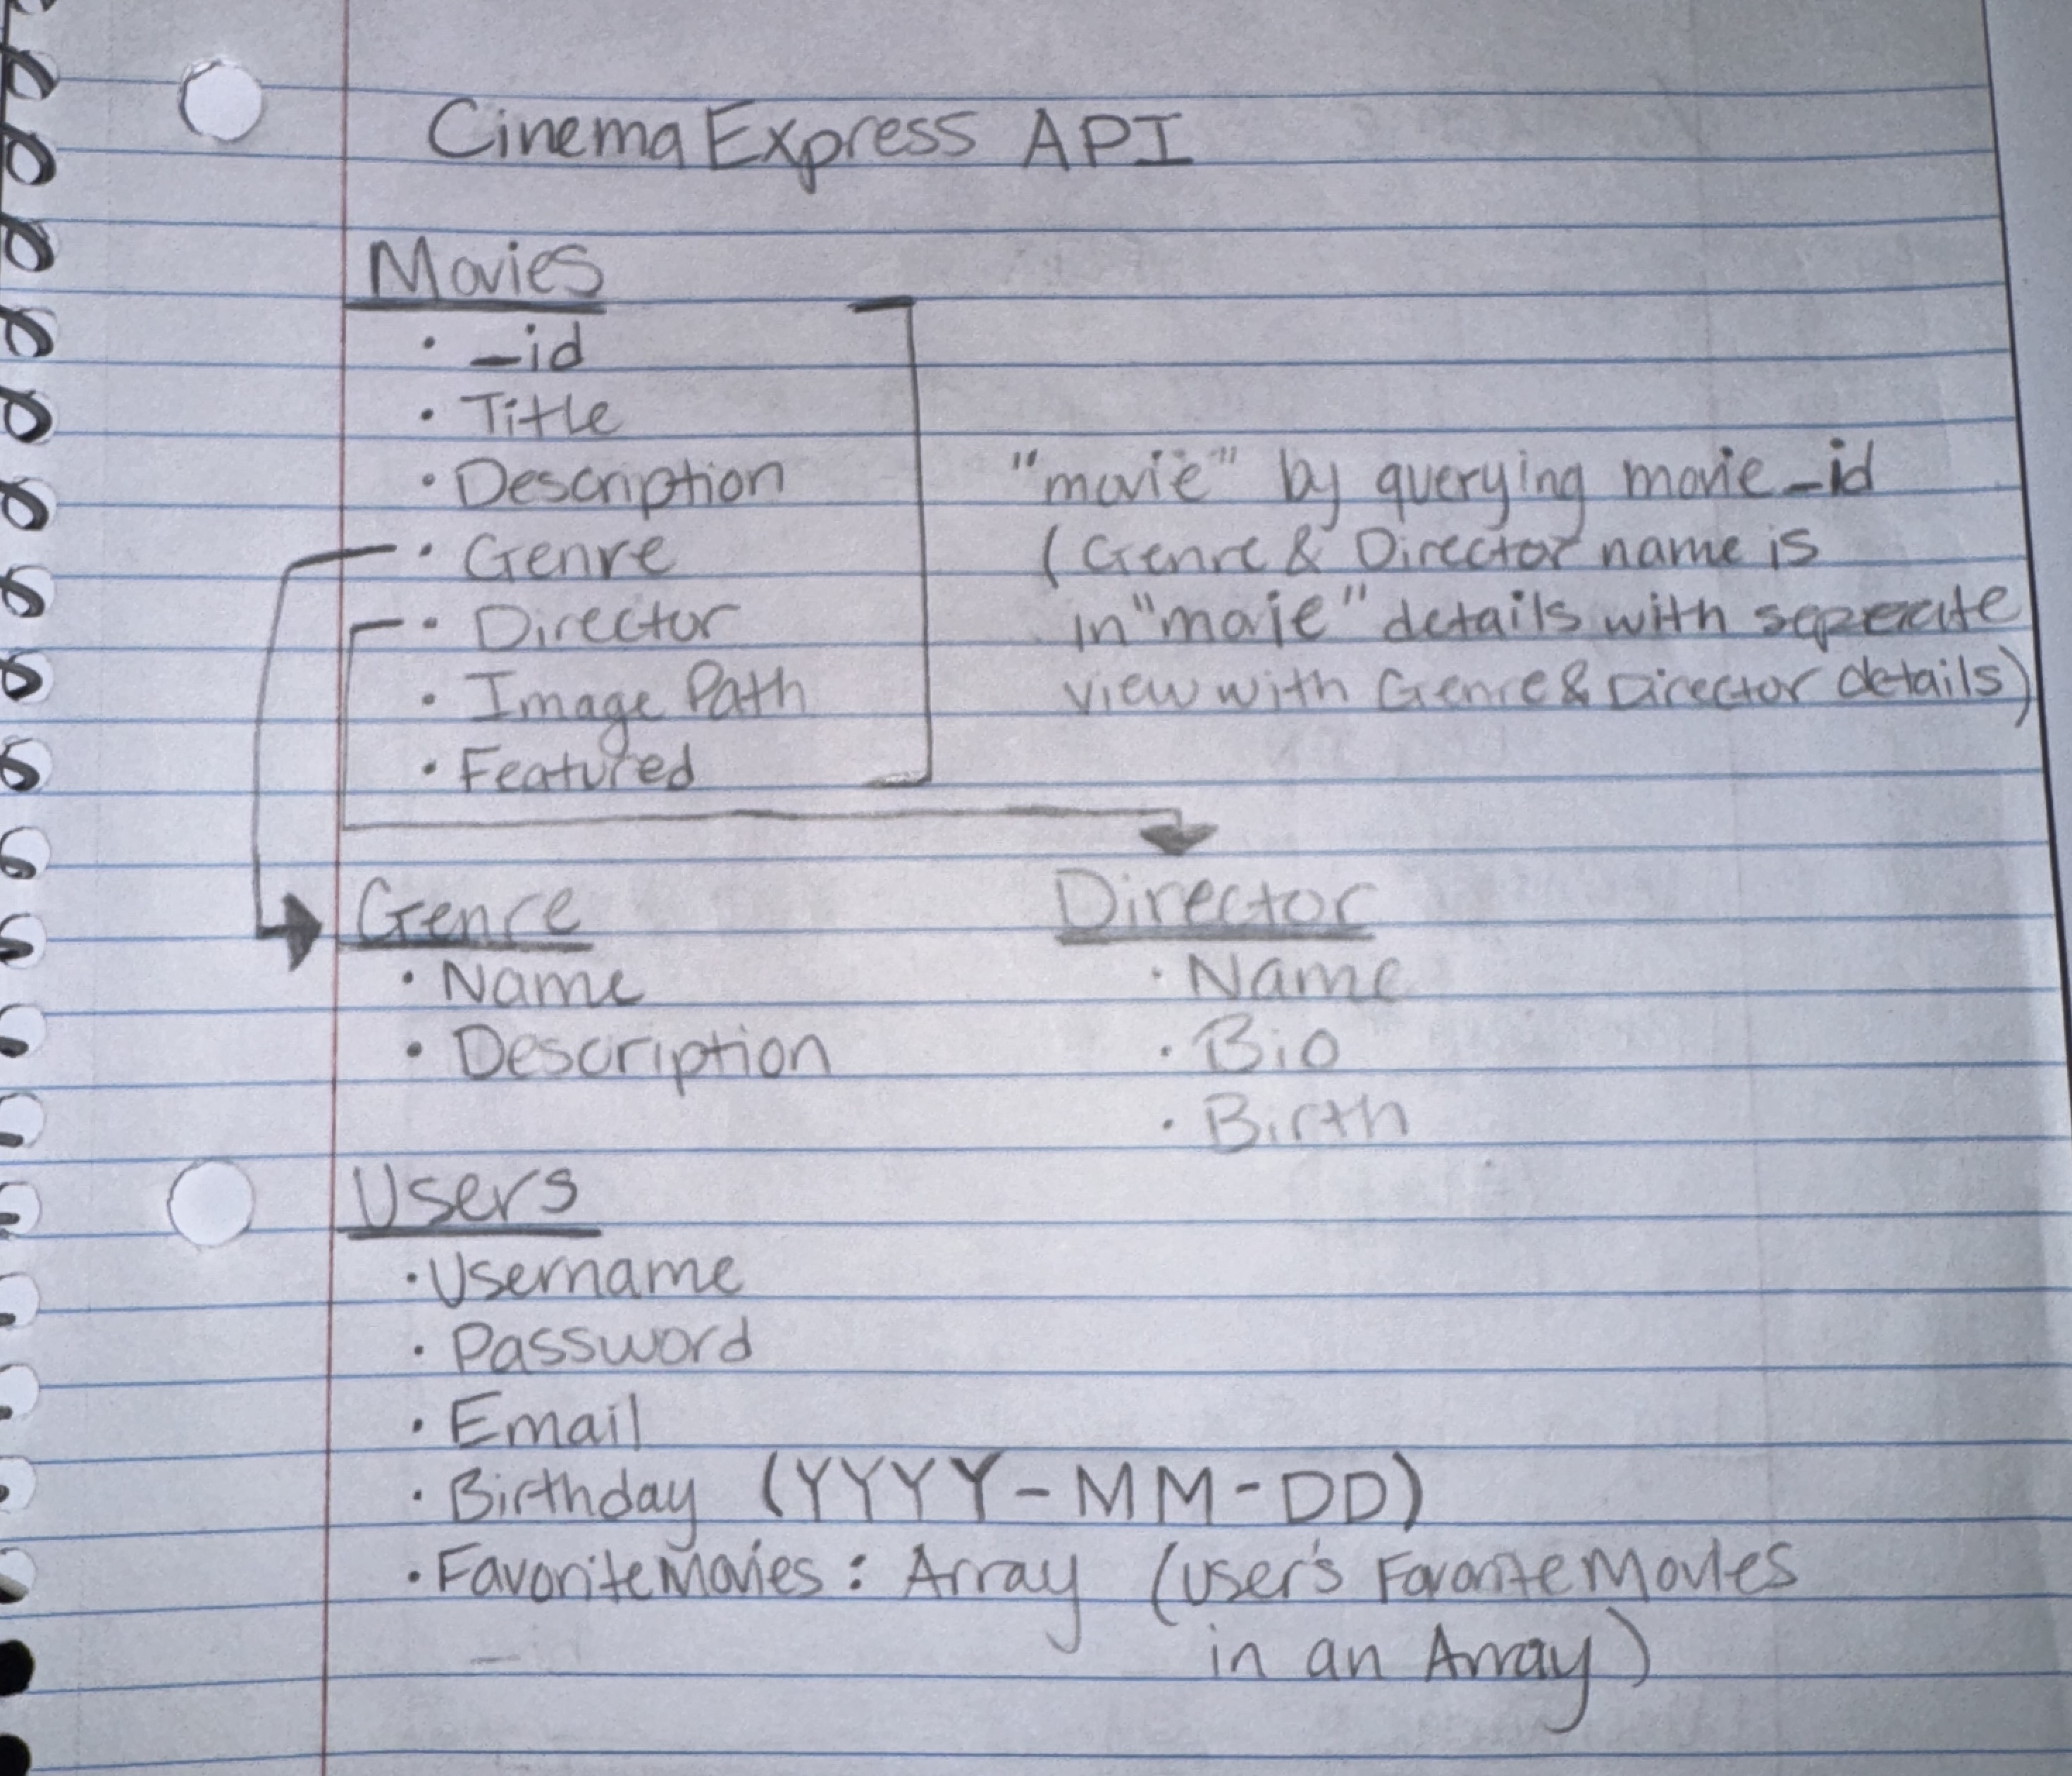 Cinema Express API
Movies
• _id
• Title
• Description
• Genre
• Director
• Image Path
• Featured
"movie" by querying movie_id
(Genre & Director name is
in "movie" details with seperate
view with Genre & Director details)
Genre
• Name
• Description
Director
• Name
• Bio
• Birth
Users
• Username
• Password
• Email
• Birthday (YYYY-MM-DD)
• FavoriteMovies: Array (user's FavoriteMovies
in an Array)